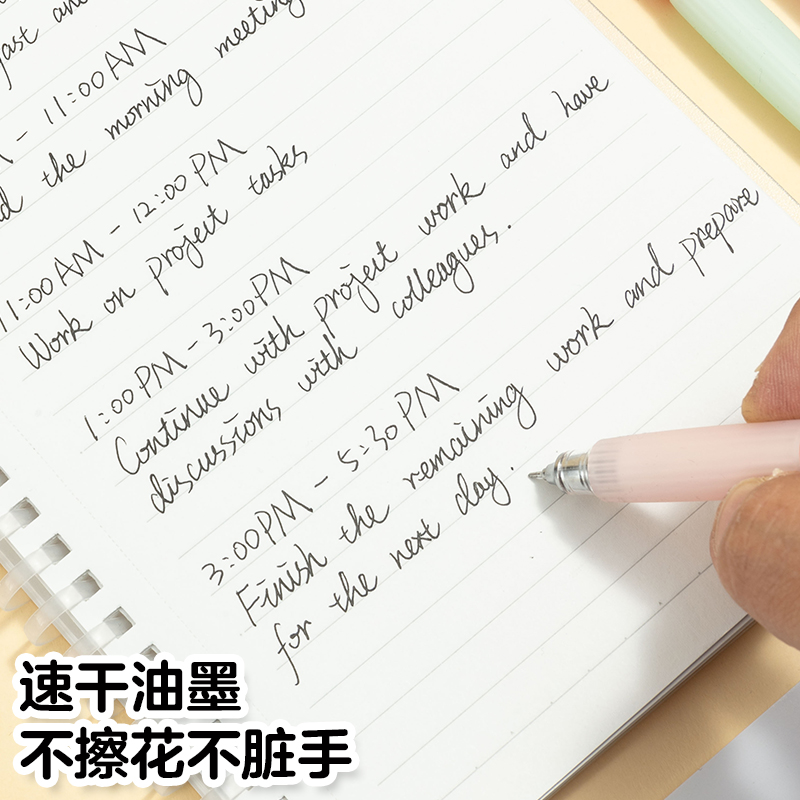 fast and
- 11:00 AM
the morning meeting
11:00 AM - 12:00 PM
Work on project tasks
1:00 PM - 3:00 PM
Continue with project work and have
discussions with colleagues.
3:00 PM - 5:30 PM
Finish the remaining work and prepare
for the next day.
速干油墨
不擦花不脏手